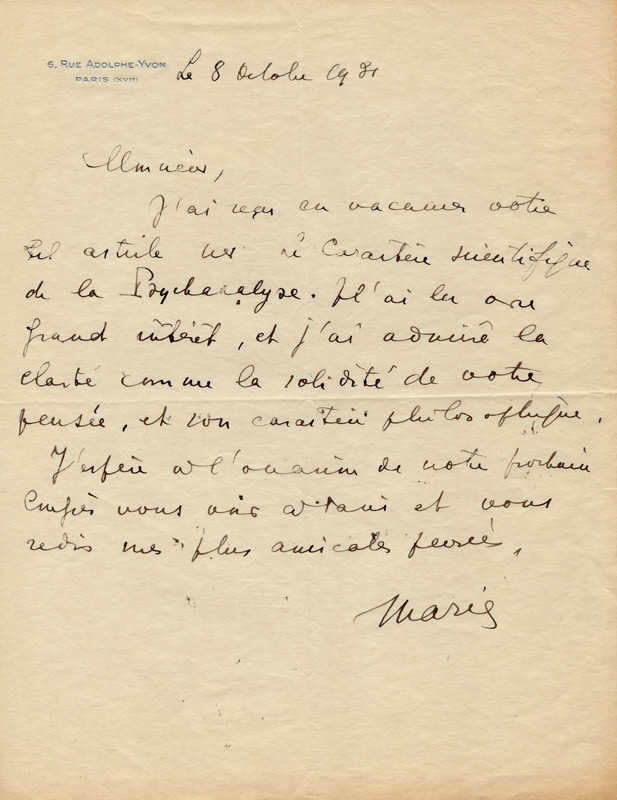 6, RUE ADOLPHE-YVON
PARIS (XVIᵉ)
Le 8 Octobre 1931
Monsieur,
J'ai reçu en vacances votre
bel article sur le Caractère scientifique
de la Psychanalyse. Je l'ai lu avec
grand intérêt, et j'ai admiré la
clarté comme la solidité de votre
pensée, et son caractère philosophique.
J'espère à l'occasion de notre prochain
Congrès vous voir à Paris et vous
redis mes plus amicales pensées,
Marie